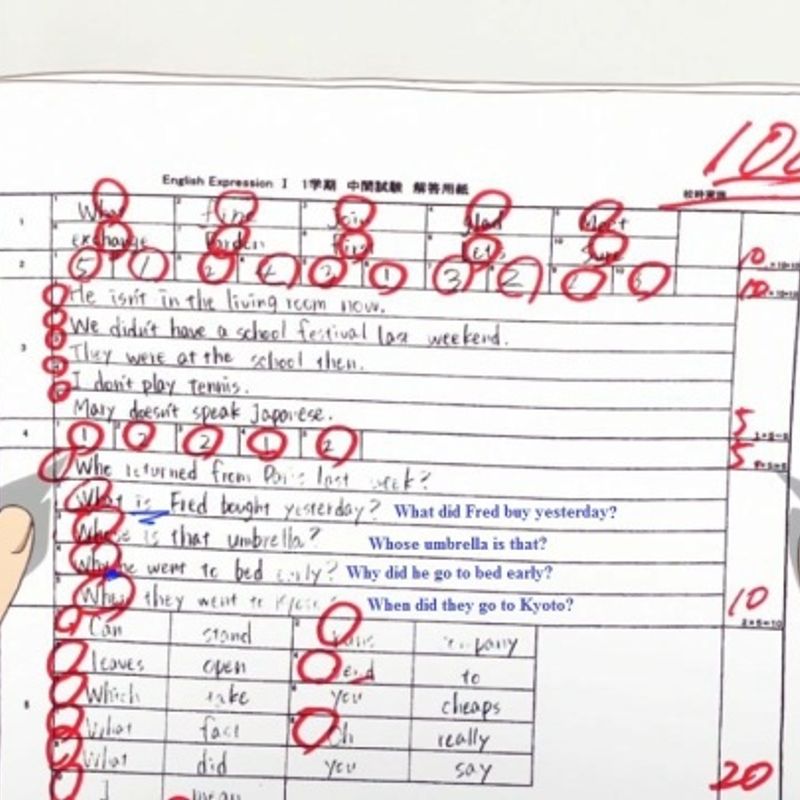 English Expression I 1学期 中間試験 解答用紙
100
1 What find Join Glad Meet
exchange Garden First Let's Sure 10
2 5 1 2 4 3 1 3 2 10
He isn't in the living room now.
We didn't have a school festival last weekend.
3 They were at the school then.
I don't play tennis.
Mary doesn't speak Japanese. 5
4 1 2 2 1 2 5
Who returned from Paris last week?
What is Fred bought yesterday? What did Fred buy yesterday?
Whose is that umbrella? Whose umbrella is that?
Why he went to bed early? Why did he go to bed early?
When they went to Kyoto? When did they go to Kyoto? 10
Can stand
leaves open to
Which take you cheaps
What fact Oh really
What did you say 20
I mean